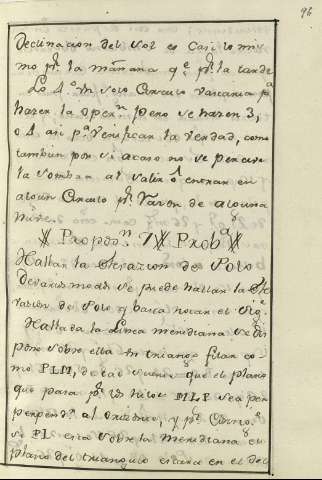 96
Declinacion del Sol es casi lo mis
mo pr. la mañana qe. pr. la tarde
Lo 4.o Un solo Circulo bastaria pa
hazer la Oper.n pero se hazen 3,
o 4, asi pa verificar la verdad, como
tambien por si acaso no se percive
la sombra al salir ò entrar en
algun Circulo pr. razon de alguna
nuve.
Propos.n 7 Prob.a
Hallar la Elevazion de Polo
De varios modos se puede hallar la Ele
vazion de Polo y basta notar el sig.e
Hallada la linea meridiana se dis
pone sobre ella un triang.o filar co
mo PLM, de tal suerte que el plano
que pasa pr. los hilos MLP sea per
perpend.r al Orizonte, y pr. consig.e
si PL esta sobre la meridiana el
plano del triangulo estara en el del